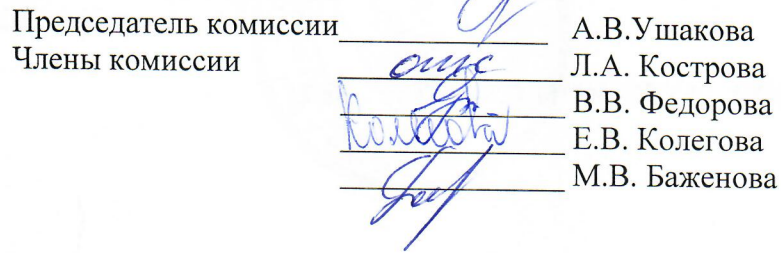 Председатель комиссии А.В.Ушакова
Члены комиссии Л.А. Кострова
В.В. Федорова
Е.В. Колегова
М.В. Баженова